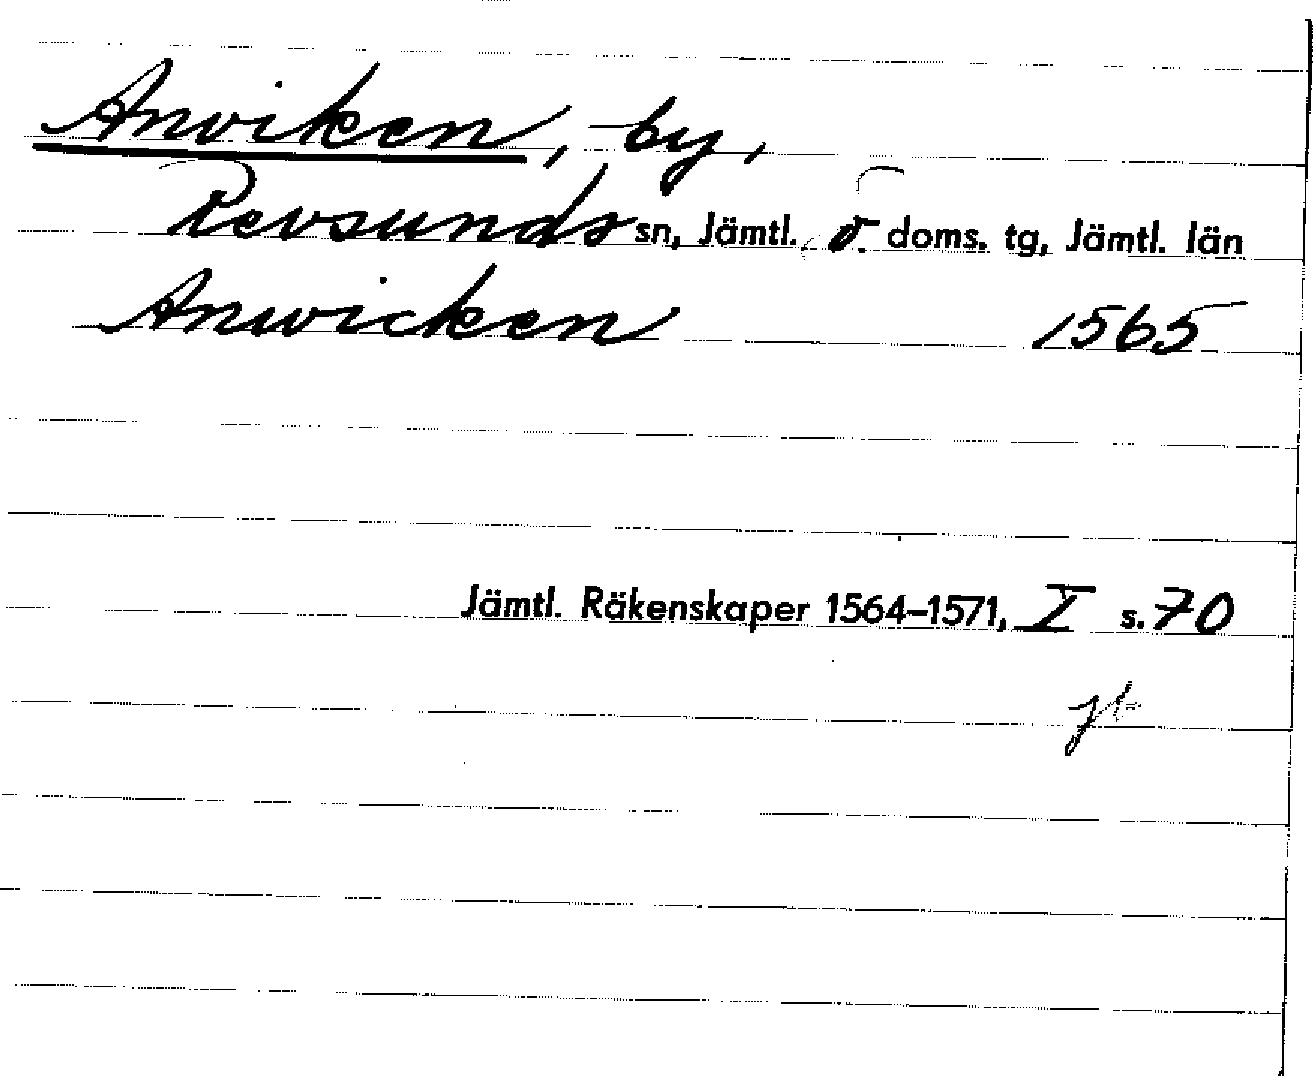 Anviken, by,
Revsunds sn, Jämtl. ö. doms. tg, Jämtl. län
Anwicken 1565
Jämtl. Räkenskaper 1564–1571, I s. 70